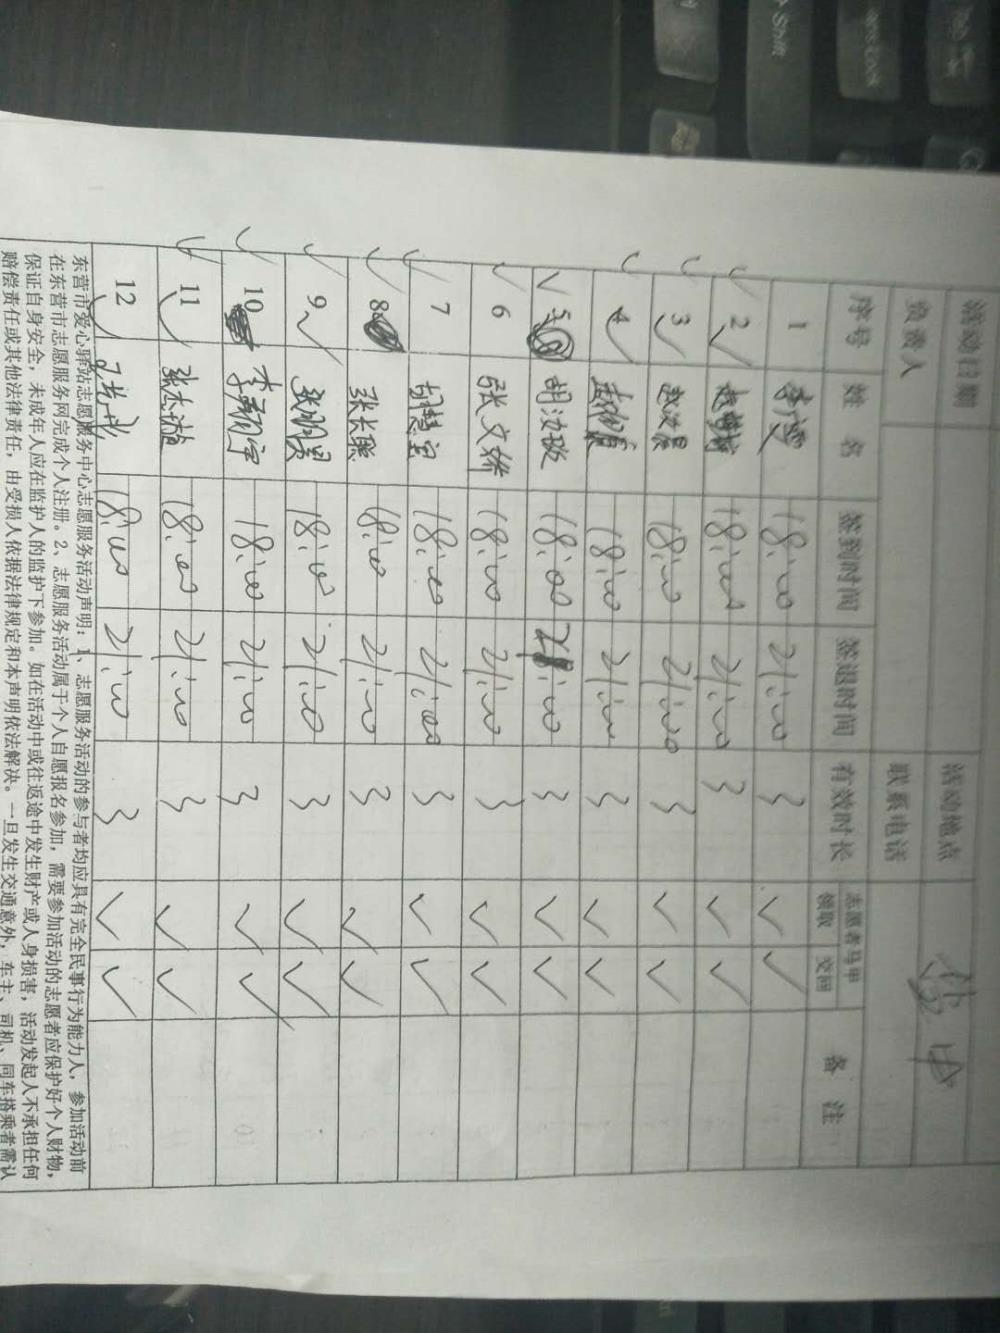 活动日期 活动地点
负责人 联系电话
序号 姓 名 签到时间 签退时间 有效时长 志愿者马甲 领取 交回 备 注
1 李雪 18:00 21:00 3 ✓ ✓
2 ✓ 赵 18:00 21:00 3 ✓ ✓
3 ✓ 赵汝晨 18:00 21:00 3 ✓ ✓
4 ✓ 18:00 21:00 3 ✓ ✓
5 胡汝璇 18:00 21:00 3 ✓ ✓
6 张文娇 18:00 21:00 3 ✓ ✓
7 胡慧宝 18:00 21:00 3 ✓ ✓
8 张长熙 18:00 21:00 3 ✓ ✓
9 ✓ 张 18:00 21:00 3 ✓ ✓
10 李 宇 18:00 21:00 3 ✓ ✓
11 ✓ 张 18:00 21:00 3 ✓ ✓
12 ✓ 18:00 21:00 3 ✓ ✓
东营市爱心驿站志愿服务中心志愿服务活动声明：1、志愿服务活动的参与者均应具有完全民事行为能力人，参加活动前
在东营市志愿服务网完成个人注册。2、志愿服务活动属于个人自愿报名参加，需要参加活动的志愿者应保护好个人财物，
保证自身安全，未成年人应在监护人的监护下参加。如在活动中或往返途中发生财产或人身损害，活动发起人不承担任何
赔偿责任或其他法律责任，由受损人依据法律规定和本声明依法解决。一旦发生交通意外，车主、司机、同车搭乘者需认
Shift